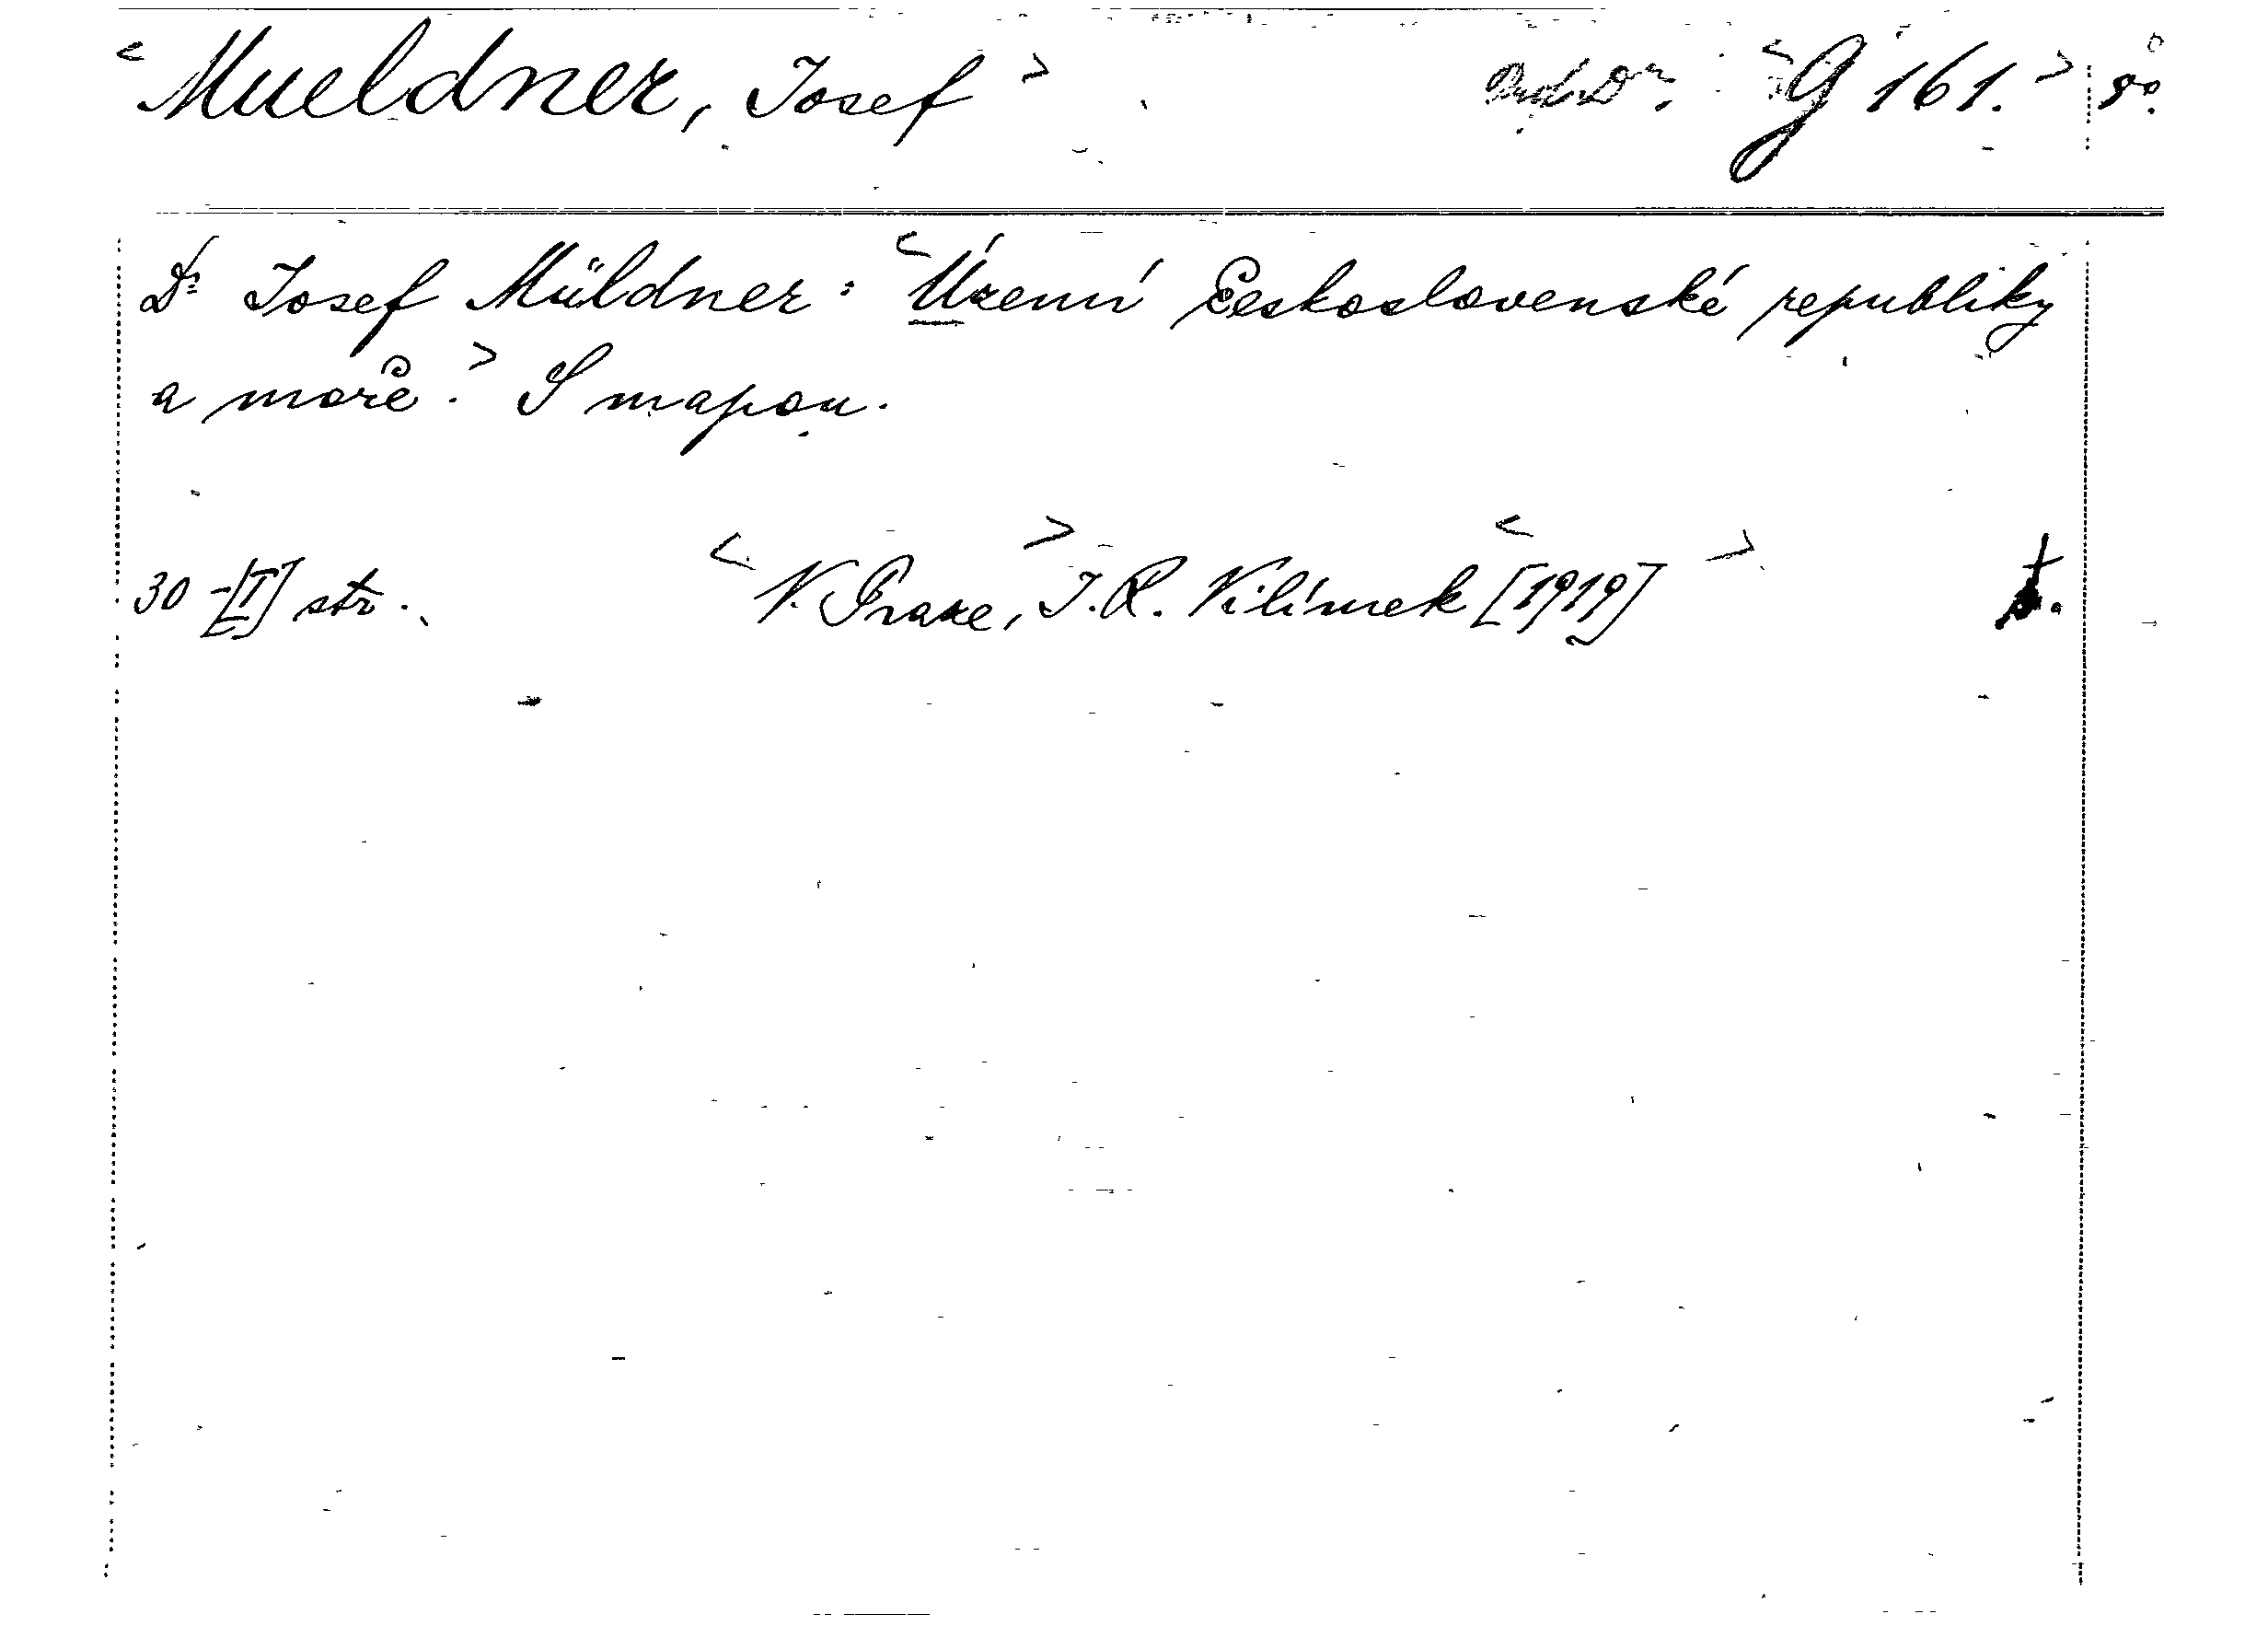 <Mueldner, Josef> <G 161.> 8°.
Dr Josef Müldner: <Území Československé republiky
a moře.> S mapou.
30-[I] str. <V Praze,> J. R. Vilímek <[1919]>